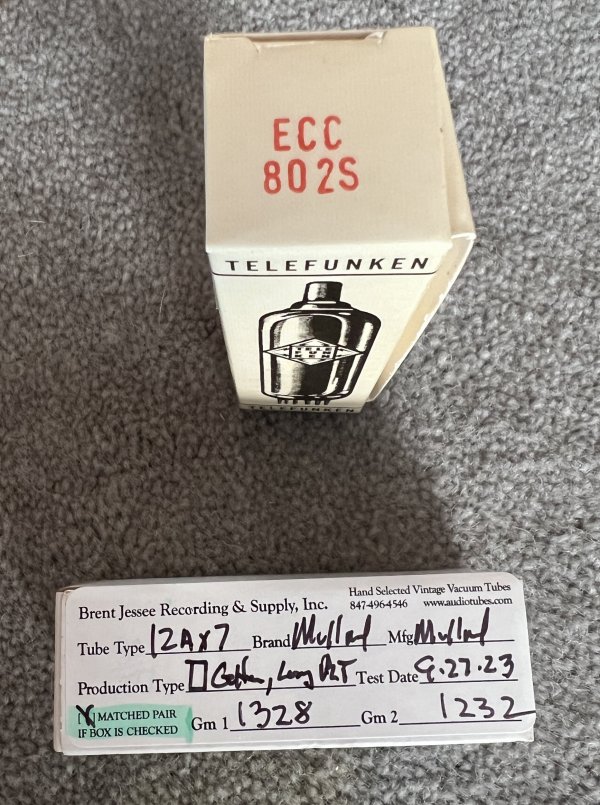 ECC
802S
TELEFUNKEN
TELE
FUN
KEN
TELEFUNKEN
Brent Jessee Recording & Supply, Inc.
Hand Selected Vintage Vacuum Tubes
847-496-4546 www.audiotubes.com
Tube Type 12AX7 Brand Mullard Mfg Mullard
Production Type Getter, Long PLT Test Date 9.27.23
[X] MATCHED PAIR
IF BOX IS CHECKED
Gm 1 1328 Gm 2 1232